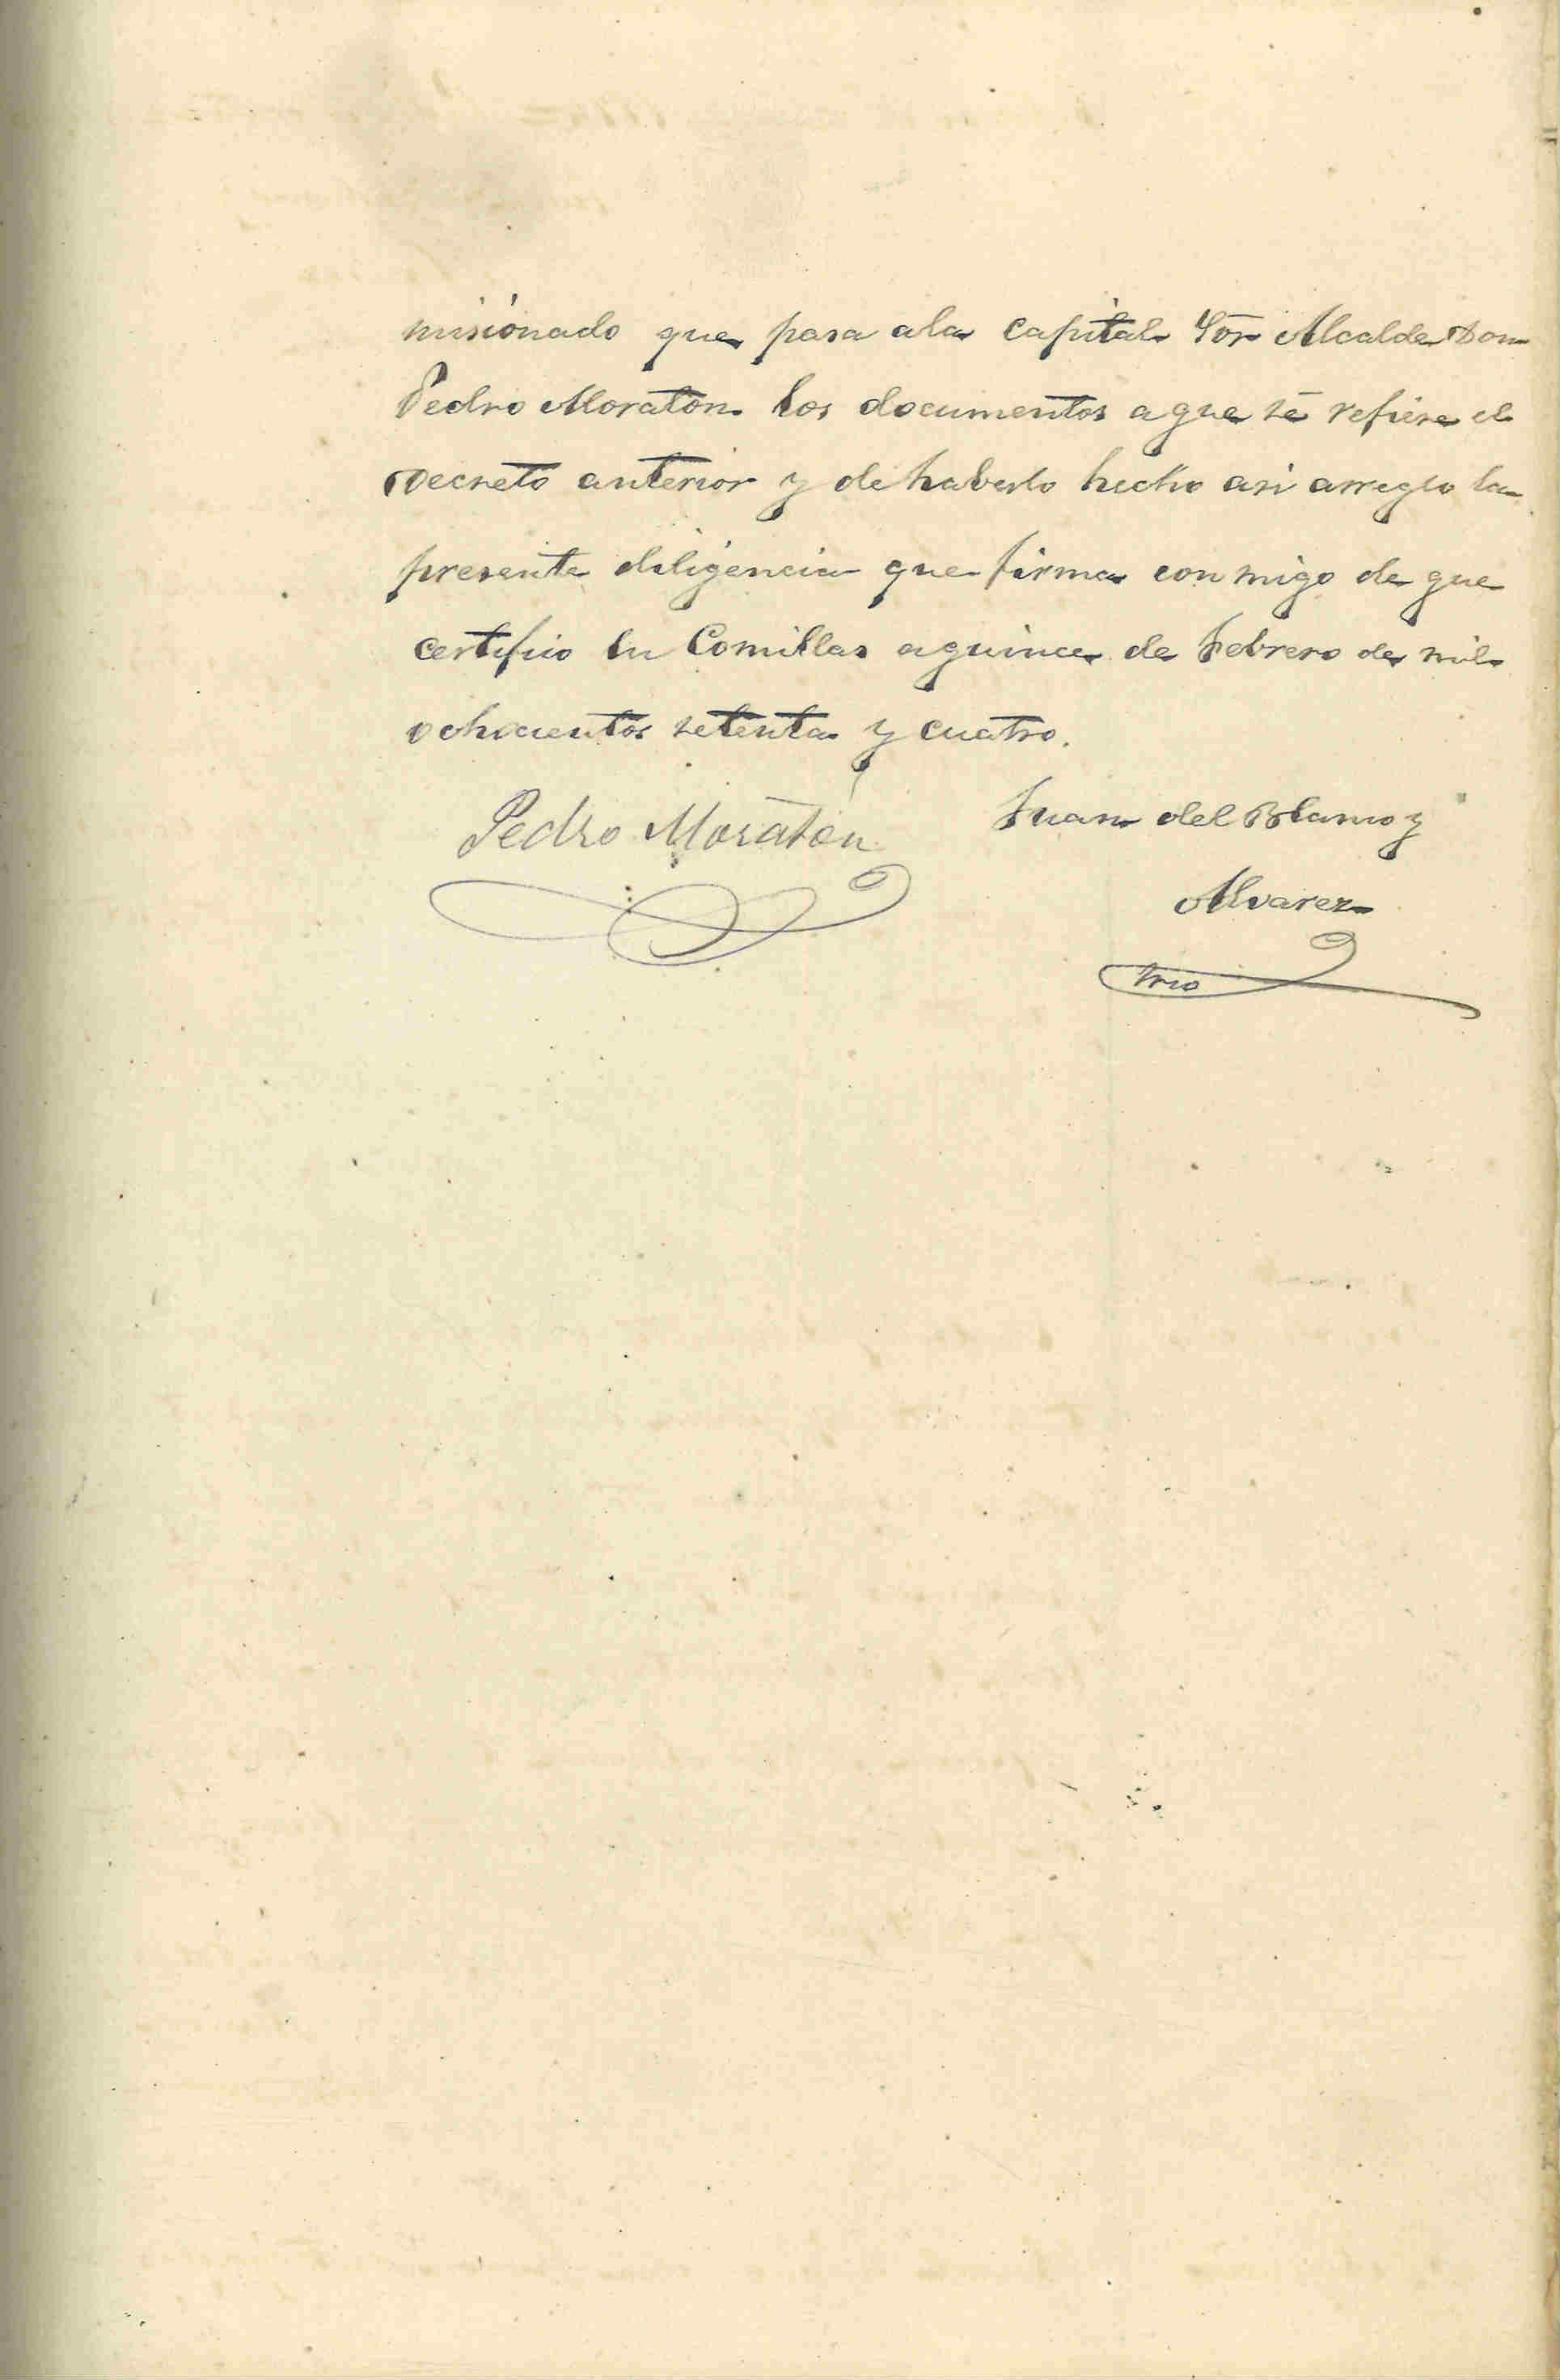 misionado que pasa ala Capital Sor Alcalde Don
Pedro Moraton los documentos a que se refiere el
Decreto anterior y de haberlo hecho asi arreglo la
presente diligencia que firma con migo de que
certifico En Comillas a quince de Febrero de mil
ochocientos setenta y cuatro.
Pedro Moraton
Juan del Blanco y
Alvarez
Srio